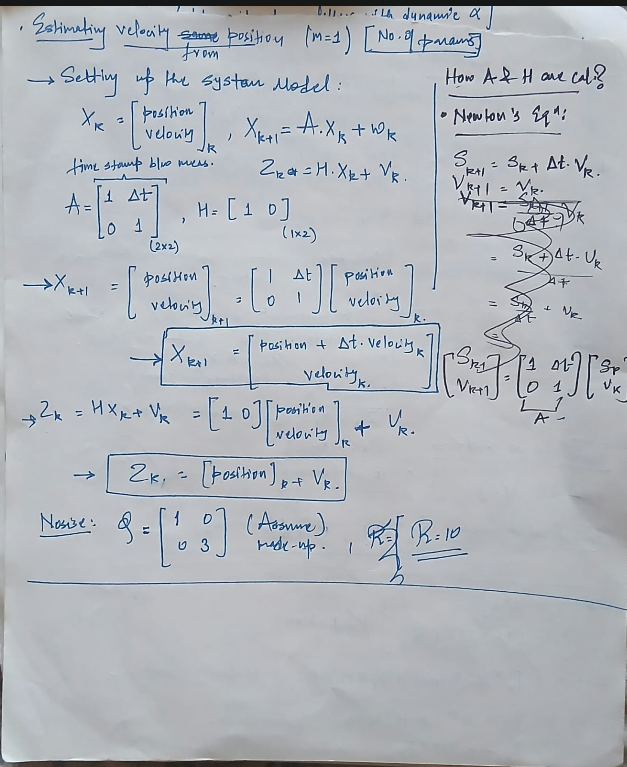 dynamic α]
. Estimating velocity from position (m=1) [No. of params]
→ Setting up the system Model:
X_k = [position velocity]_k , X_k+1 = A.X_k + w_k
time stamp b/w meas.
Z_k = H.X_k + V_k.
A = [1 Δt 0 1] (2x2) , H = [1 0] (1x2)
→ X_k+1 = [position velocity]_k+1 = [1 Δt 0 1] [position velocity]_k.
→ X_k+1 = [position + Δt. velocity_k velocity_k.]
→ Z_k = HX_k + V_k = [1 0] [position velocity]_k + V_k.
→ Z_k. = [position]_k + V_k.
Nosise: Q = [1 0 0 3] (Assume) made-up. , R = 10
How A & H are cal.?
• Newton's Eqⁿ:
S_k+1 = S_k + Δt. V_k.
V_k+1 = V_k.
[S_k+1 V_k+1] = [1 Δt 0 1] [S_k V_k
A